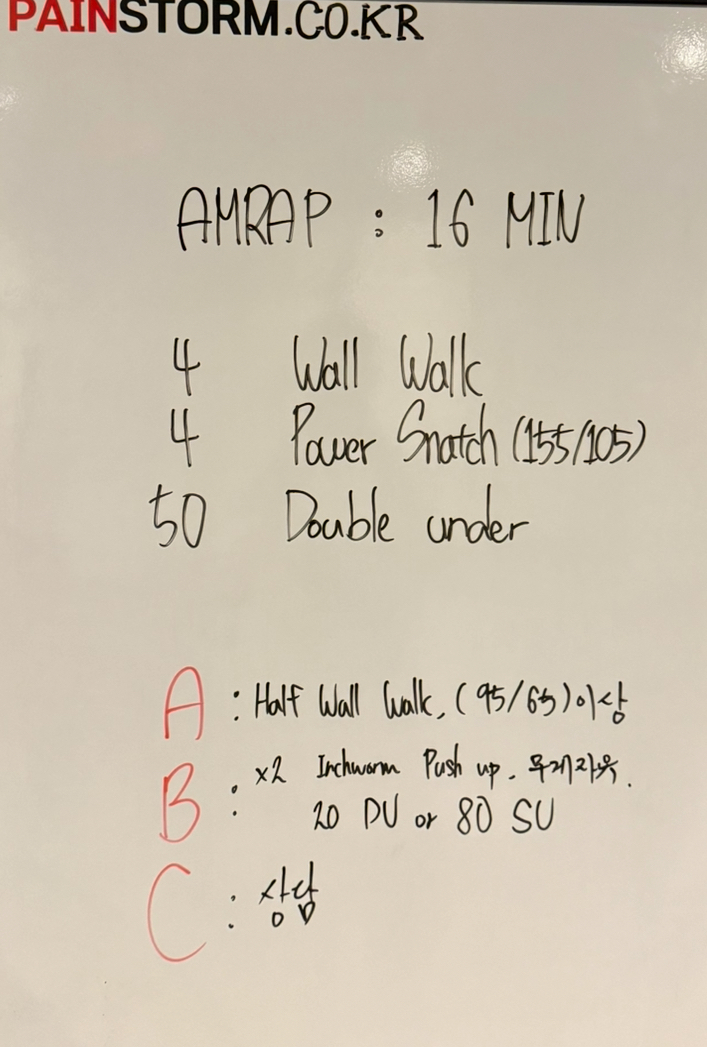 PAINSTORM.CO.KR
AMRAP : 16 MIN
4 Wall Walk
4 Power Snatch (155/105)
50 Double under
A : Half Wall Walk, (95/65)이상
B : x2 Inchworm Push up. 무게자유.
20 DU or 80 SU
C : 상담